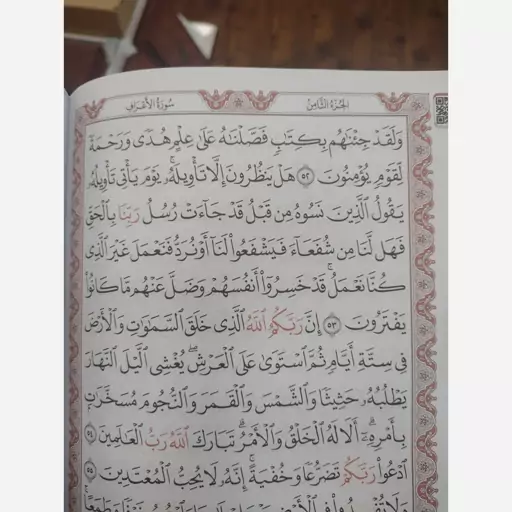 سُورَةُ الأَعْرَافِ الجُزْءُ الثَّامِنُ
وَلَقَدْ جِئْنَٰهُم بِكِتَٰبٍ فَصَّلْنَٰهُ عَلَىٰ عِلْمٍ هُدًى وَرَحْمَةً
لِّقَوْمٍ يُؤْمِنُونَ ٥٢ هَلْ يَنظُرُونَ إِلَّا تَأْوِيلَهُۥ ۚ يَوْمَ يَأْتِى تَأْوِيلُهُۥ
يَقُولُ الَّذِينَ نَسُوهُ مِن قَبْلُ قَدْ جَآءَتْ رُسُلُ رَبِّنَا بِالْحَقِّ
فَهَل لَّنَا مِن شُفَعَآءَ فَيَشْفَعُوا۟ لَنَآ أَوْ نُرَدُّ فَنَعْمَلَ غَيْرَ الَّذِى
كُنَّا نَعْمَلُ ۚ قَدْ خَسِرُوٓا۟ أَنفُسَهُمْ وَضَلَّ عَنْهُم مَّا كَانُوا۟
يَفْتَرُونَ ٥٣ إِنَّ رَبَّكُمُ اللَّهُ الَّذِى خَلَقَ السَّمَٰوَٰتِ وَالْأَرْضَ
فِى سِتَّةِ أَيَّامٍ ثُمَّ اسْتَوَىٰ عَلَى الْعَرْشِ ۖ يُغْشِى الَّيْلَ النَّهَارَ
يَطْلُبُهُۥ حَثِيثًا وَالشَّمْسَ وَالْقَمَرَ وَالنُّجُومَ مُسَخَّرَٰتٍۭ
بِأَمْرِهِۦٓ ۗ أَلَا لَهُ الْخَلْقُ وَالْأَمْرُ ۗ تَبَارَكَ اللَّهُ رَبُّ الْعَٰلَمِينَ ٥٤
ادْعُوا۟ رَبَّكُمْ تَضَرُّعًا وَخُفْيَةً ۚ إِنَّهُۥ لَا يُحِبُّ الْمُعْتَدِينَ ٥٥
وَلَا تُفْسِدُوا۟ فِى الْأَرْضِ